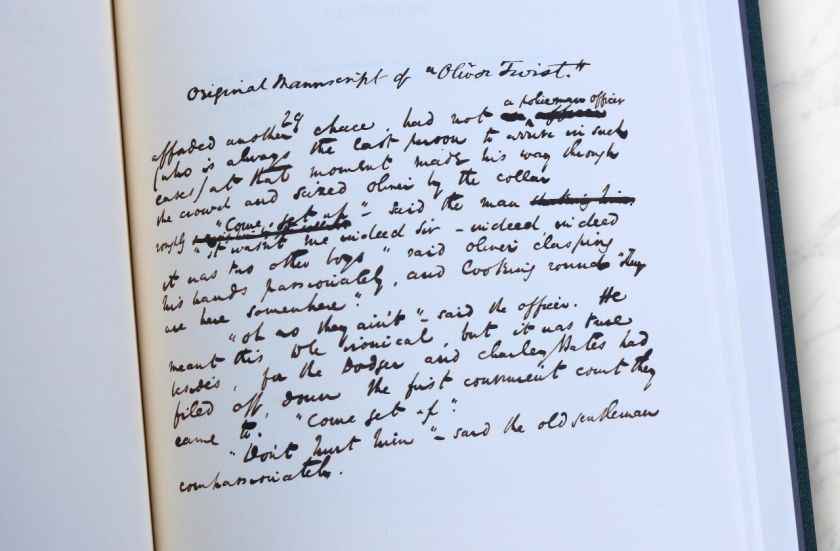 Original Manuscript of "Oliver Twist."
29
afforded another chace, had not a policeman officer
(who is always the last person to arrive in such
cases) at that moment made his way through
the crowd and seized oliver by the collar
"Come, get up" – said the man
roughly
"It wasn't me indeed sir – indeed, indeed
it was two other boys" said oliver clasping
his hands passionately, and looking round "They
are here somewhere".
"oh no they ain't" – said the officer. He
meant this to be ironical, but it was true
besides, for the Dodger and Charley Bates had
filed off, down the first convenient court they
came to. "Come get up".
"Don't hurt him" – said the old gentleman
compassionately.